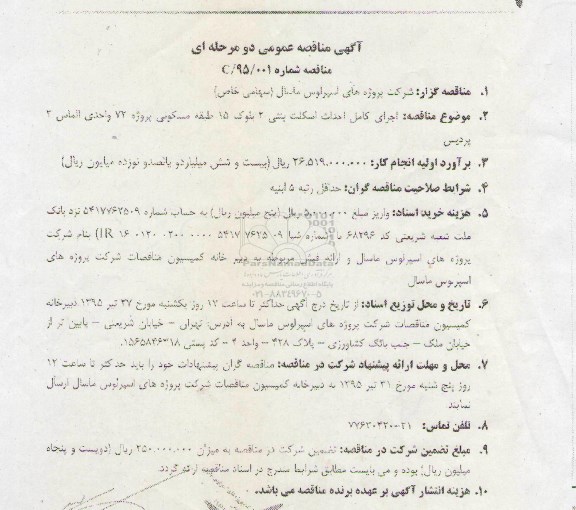 آگهی مناقصه عمومی دو مرحله ای
مناقصه شماره C/۹۵/۰۰۱
۱. مناقصه گزار: شرکت پروژه های اسپرلوس ماسال (سهامی خاص)
۲. موضوع مناقصه: اجرای کامل احداث اسکلت بتنی ۲ بلوک ۱۵ طبقه مسکونی پروژه ۷۲ واحدی الماس ۲
پردیس
۳. برآورد اولیه انجام کار: ۲۶،۵۱۹،۰۰۰،۰۰۰ ریال (بیست و شش میلیاردو پانصدو نوزده میلیون ریال)
۴. شرایط صلاحیت مناقصه گران: حداقل رتبه ۵ ابنیه
۵. هزینه خرید اسناد: واریز مبلغ ۵،۰۰۰،۰۰۰ ریال (پنج میلیون ریال) به حساب شماره ۵۴۱۷۷۶۲۵۰۹ نزد بانک
ملت شعبه شریعتی کد ۶۸۲۹۶ با شماره شبا IR ۱۶ ۰۱۲۰ ۰۲۰۰ ۰۰۰۰ ۵۴۱۷ ۷۶۲۵ ۰۹) بنام شرکت
پروژه های اسپرلوس ماسال و ارائه فیش مربوطه به دبیر خانه کمیسیون مناقصات شرکت پروژه های
اسپرلوس ماسال
۶. تاریخ و محل توزیع اسناد: از تاریخ درج آگهی حداکثر تا ساعت ۱۲ روز یکشنبه مورخ ۲۷ تیر ۱۳۹۵ دبیرخانه
کمیسیون مناقصات شرکت پروژه های اسپرلوس ماسال به آدرس: تهران – خیابان شریعتی – پایین تر از
خیابان ملک – جنب بانک کشاورزی – پلاک ۴۲۸ – واحد ۴ – کد پستی
۷. محل و مهلت ارائه پیشنهاد شرکت در مناقصه: مناقصه گران پیشنهادات خود را باید حداکثر تا ساعت ۱۲
روز پنج شنبه مورخ ۳۱ تیر ۱۳۹۵ به دبیرخانه کمیسیون مناقصات شرکت پروژه های اسپرلوس ماسال ارسال
نمایند
۸. تلفن تماس: ۷۷۶۳۰۴۲۰-۲۱
۹. مبلغ تضمین شرکت در مناقصه: تضمین شرکت در مناقصه به میزان ۲۵۰،۰۰۰،۰۰۰ ریال (دویست و پنجاه
میلیون ریال) بوده و می بایست مطابق شرایط مندرج در اسناد مناقصه ارائه گردد.
۱۰. هزینه انتشار آگهی بر عهده برنده مناقصه می باشد.